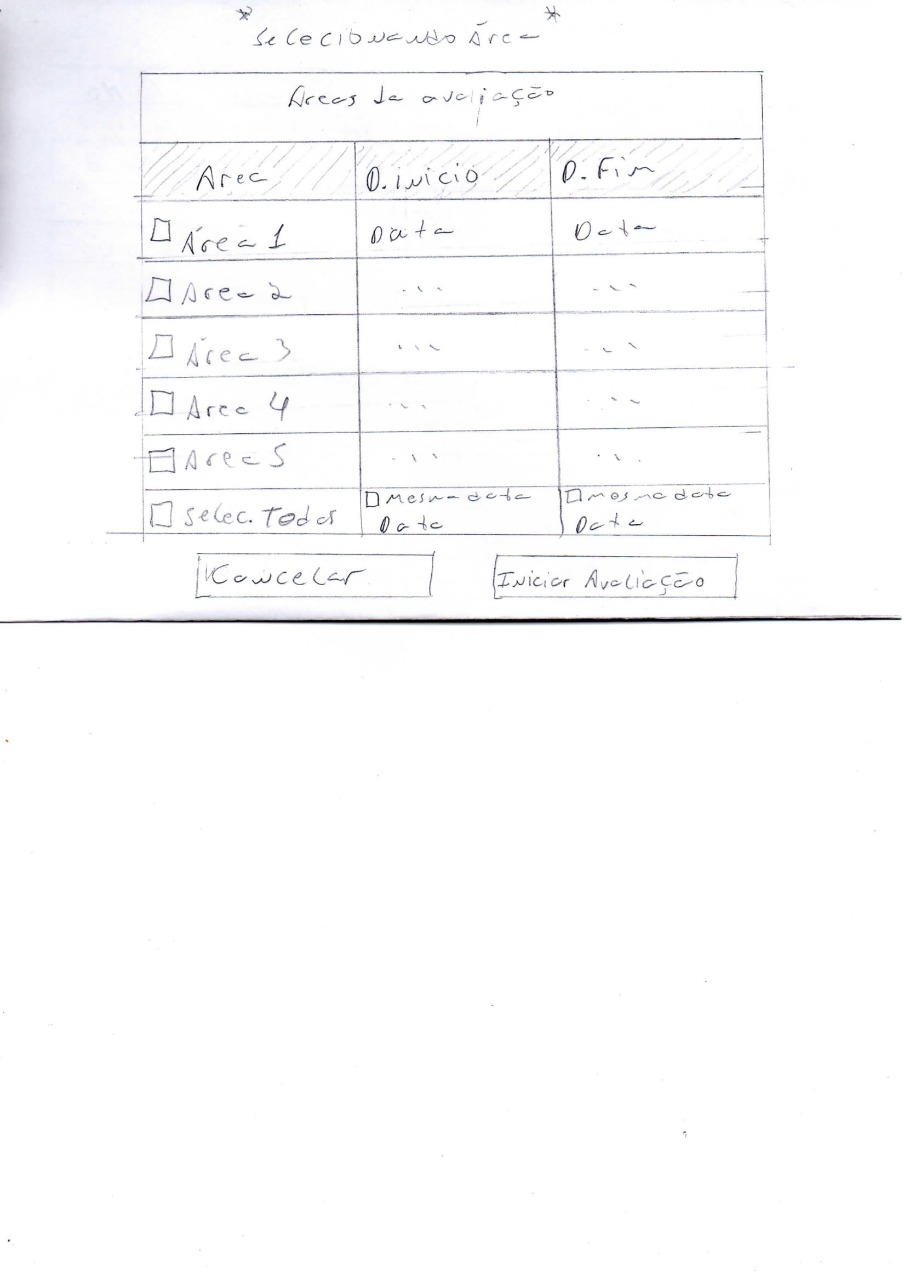 * Selecionando Área *
Areas de avaliação
Area D. inicio D. Fim
Área 1 Data Data
Area 2 ... ...
Área 3 ... ...
Area 4 ... ...
Area 5 ... ...
Selec. Todas Mesma data Mesma data
Data Data
Cancelar Iniciar Avaliação